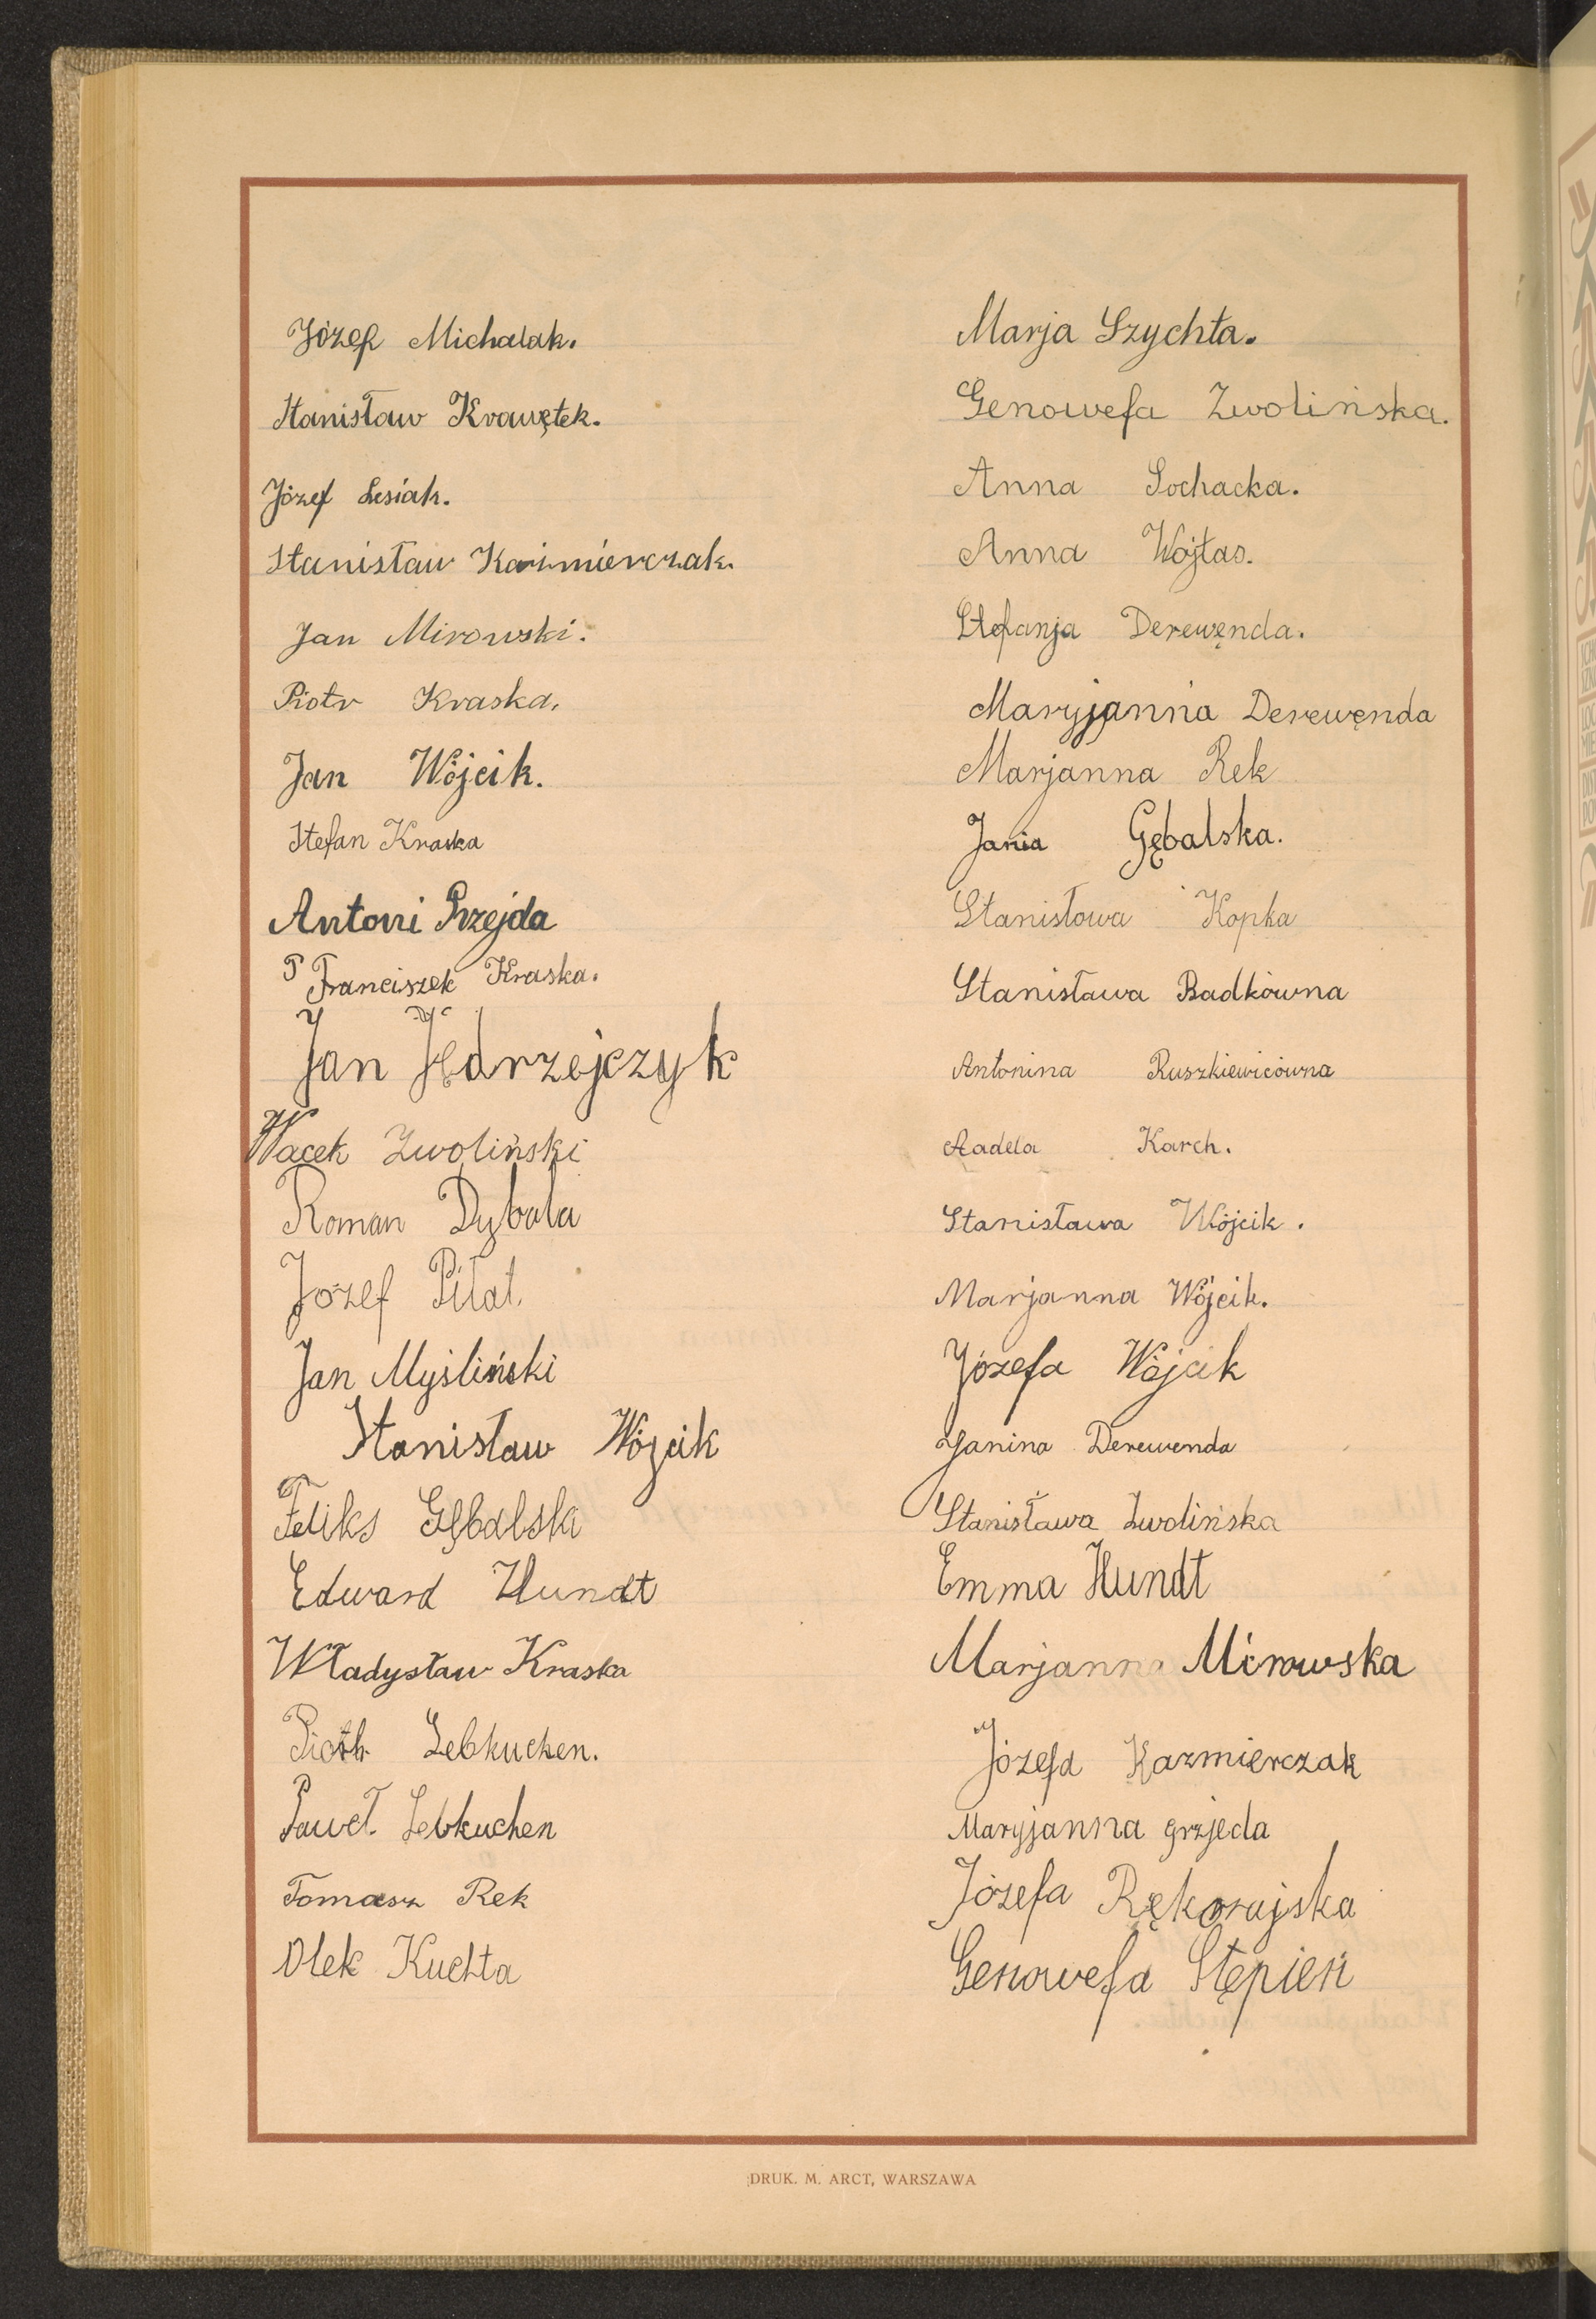 Józef Michalak.
Stanisław Krawętek.
Józef Lesiak.
Stanisław Kazimierczak.
Jan Mirowski.
Piotr Kraska.
Jan Wójcik.
Stefan Kraska
Antoni Grzejda
Franciszek Kraska.
Jan Jędrzejczyk
Wacek Zwoliński
Roman Dybala
Józef Piłat.
Jan Myśliński
Stanisław Wójcik
Feliks Gębalski
Edward Hundt
Władysław Kraska
Piotr Lebkuchen.
Paweł Lebkuchen
Tomasz Rek
Olek Kuchta
Marja Szychta.
Genowefa Zwolińska.
Anna Sochacka.
Anna Wojtas.
Stefanja Derewęnda.
Maryjanna Derewęnda
Marjanna Rek
Jania Gębalska.
Stanisłowa Kopka
Stanisława Badkówna
Antonina Ruszkiewicówna
Aadela Karch.
Stanisława Wójcik.
Marjanna Wójcik.
Józefa Wójcik
Janina Derewenda
Stanisława Zwolińska
Emma Hundt
Marjanna Mirowska
Józefa Kazmierczak
Maryjanna grzjeda
Józefa Rękorajska
Genowefa Stępień
DRUK. M. ARCT, WARSZAWA